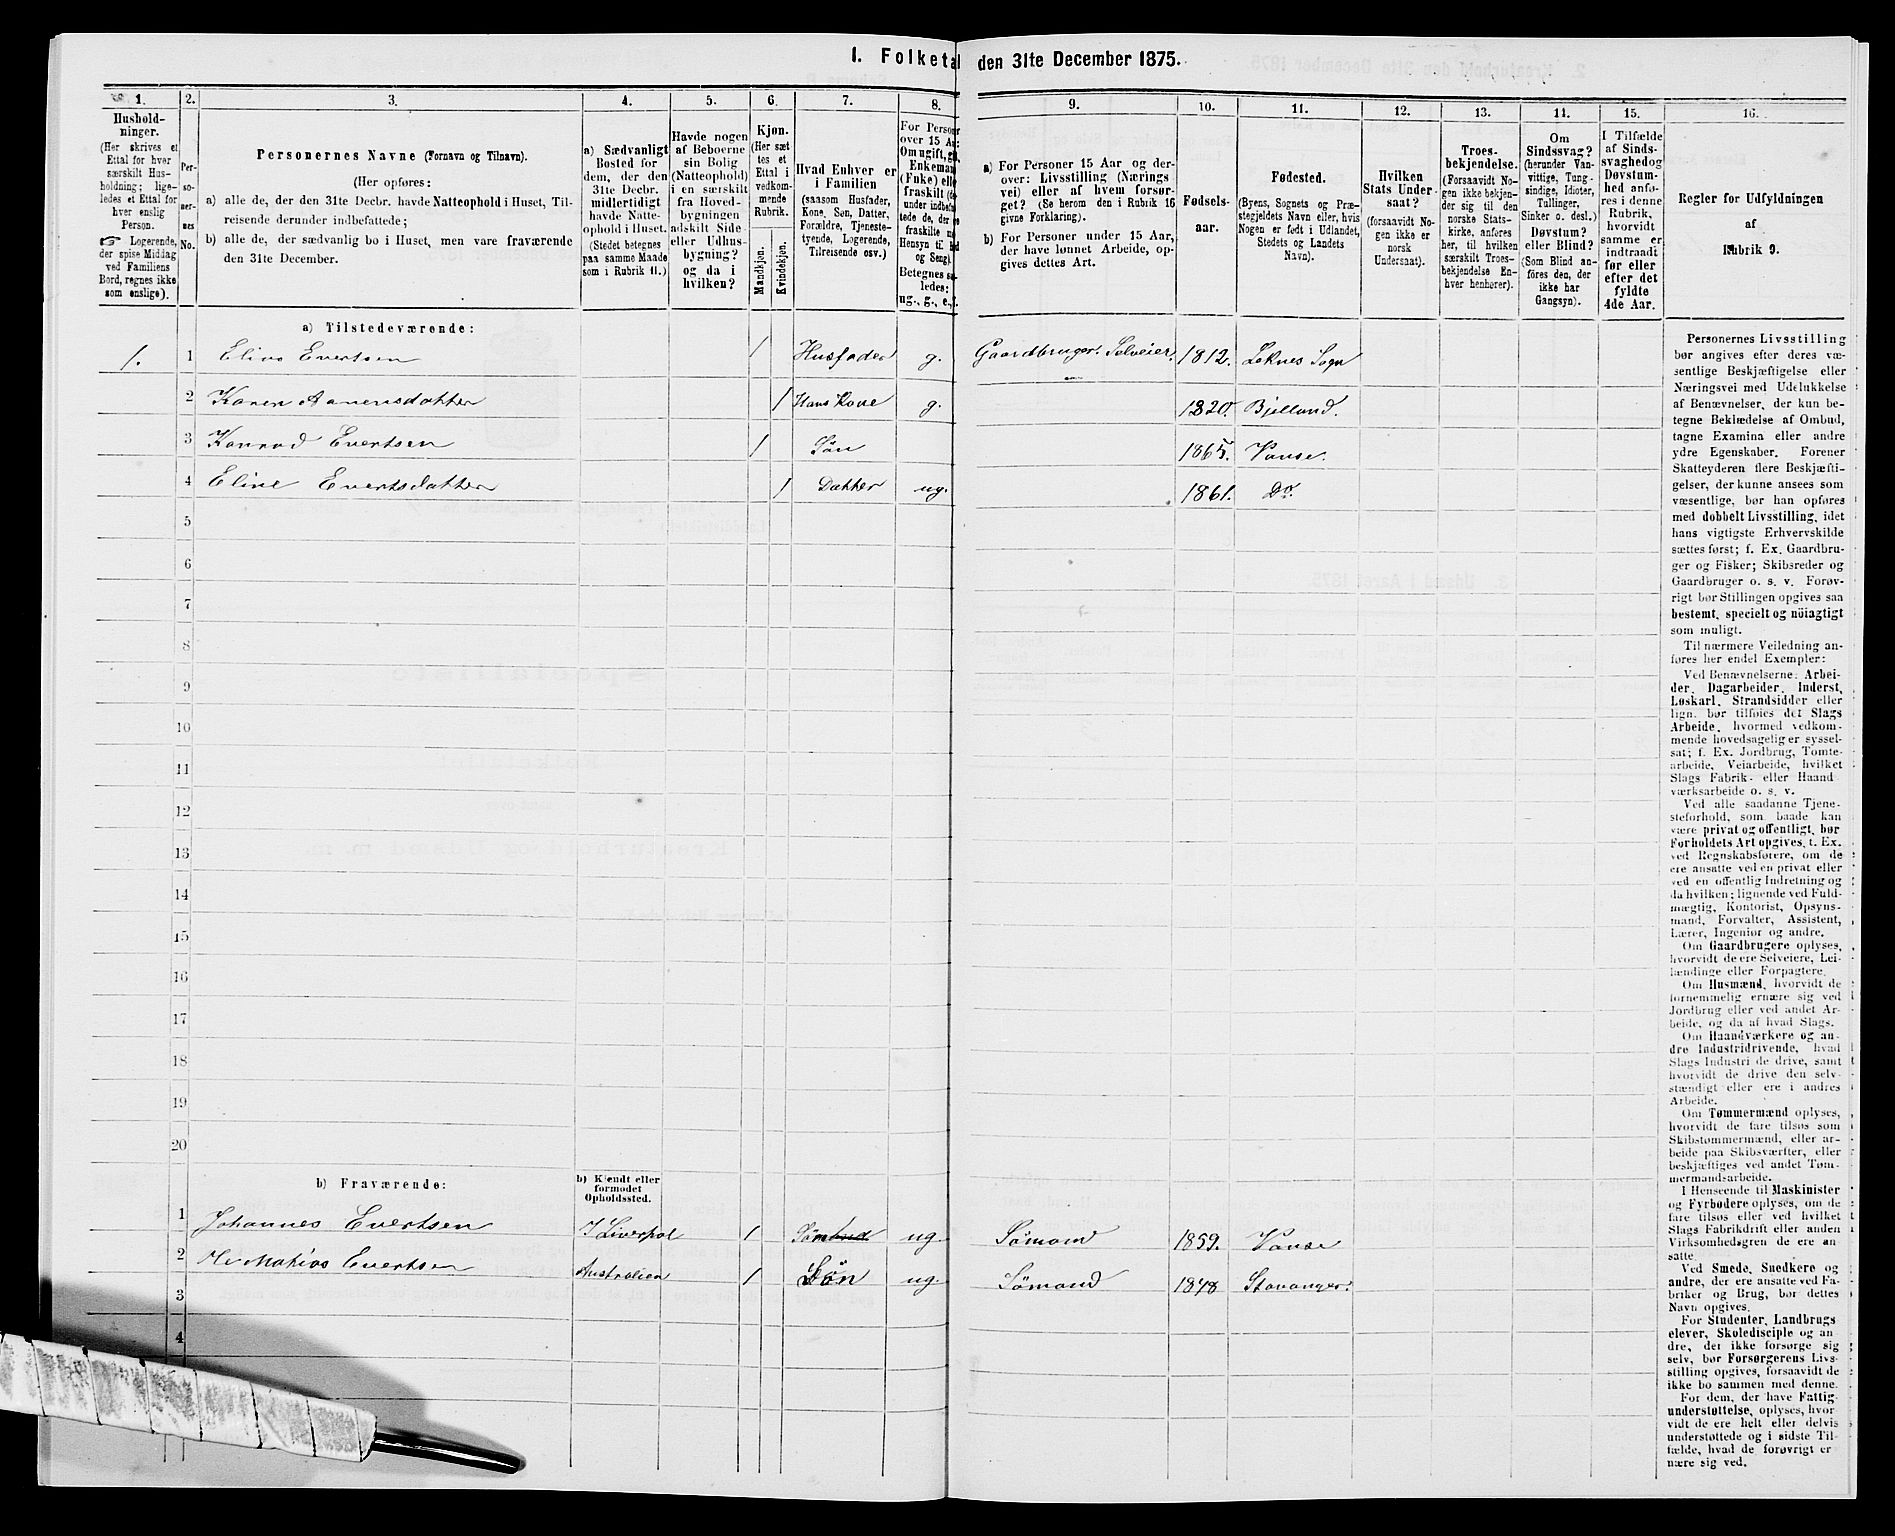 1. Folketal den 31te December 1875.
1. 2. 3. 4. 5. 6. 7. 8. 9. 10. 11. 12. 13. 14. 15. 16.
Hushold-
ninger.
(Her skrives et
Ettal for hver
særskilt Hus-
holdning; lige-
ledes et Ettal for
hver enslig
Person.
☞ Logerende,
der spise Middag
ved Familiens
Bord, regnes ikke
som enslige).
Per-
so-
ner-
nes
No.
Personernes Navne (Fornavn og Tilnavn).
(Her opføres:
a) alle de, der den 31te Decbr. havde Natteophold i Huset, Til-
reisende derunder indbefattede;
b) alle de, der sædvanlig bo i Huset, men vare fraværende
den 31te December.
a) Sædvanligt
Bosted for
dem, der den
31te Decbr.
midlertidigt
havde Natte-
ophold i Huset.
(Stedet betegnes
paa samme Maade
som i Rubrik 11.)
Havde nogen
af Beboerne
sin Bolig
(Natteophold)
i en særskilt
fra Hoved-
bygningen
adskilt Side-
eller Udhus-
bygning?
og da i
hvilken?
Kjøn.
(Her sæt
tes et
Ettal i
vedkom-
mende
Rubrik.
Mandkjøn.
Kvindekjøn.
Hvad Enhver er
i Familien
(saasom Husfader,
Kone, Søn, Datter,
Forældre, Tjeneste-
tyende, Logerende,
Tilreisende osv.)
For Person
over 15 Aar
Om ugift, gift
Enkemand
(Enke) eller
fraskilt
og Seng).
ug., g., e., f.
a) For Personer 15 Aar og der-
over: Livsstilling (Nærings
vei) eller af hvem forsør-
get? (Se herom den i Rubrik 16
givne Forklaring).
b) For Personer under 15 Aar,
der have lønnet Arbeide, op-
gives dettes Art.
Fødsels-
aar.
Fødested.
(Byens, Sognets og Præ-
stegjeldets Navn eller, hvis
Nogen er født i Udlandet,
Stedets og Landets
Navn).
Hvilken
Stats Under-
saat?
(forsaavidt No-
gen ikke er
norsk
Undersaat).
Troes-
bekjendelse.
(Forsaavidt No-
gen ikke bekjen-
der sig til den
norske Stats-
kirke, anføres
her, til hvilken
særskilt Troes-
bekjendelse En-
hver henhører).
Om
Sindssvag?
(herunder Van-
vittige, Tung-
sindige, Idioter,
Tullinger,
Sinker o. desl.)
Døvstum?
eller Blind?
(Som Blind an-
føres den, der
ikke har
Gangsyn).
I Tilfælde
af Sinds-
svaghed og
Døvstum-
hed anfø-
res i denne
Rubrik,
hvorvidt
samme er
indtraadt
før eller
efter det
fyldte
4de Aar.
Regler for Udfyldningen
af
Rubrik 9.
a) Tilstedeværende:
1. 1 Elias Evertsen 1 Husfader g. Gaardbruger. Selveier. 1812. Leknes Sogn
2 Karen Aanensdatter 1 Hans Kone g. 1820. Bjelland.
3 Konrad Evertsen 1 Søn 1865. Vanse.
4 Eline Evertsdatter 1 Datter ug. 1861. Do.
5
6
7
8
9
10
11
12
13
14
15
16
17
18
19
20
b) Fraværende: b) Kjendt eller
formodet
Opholdssted.
1 Johannes Evertsen I Liverpol 1 Søn ug. Sømand 1859. Vanse
2 Mathias Evertsen Australien 1 Søn ug. Sømand 1848 Stavanger.
3
4
Personernes Livsstilling
bør angives efter deres væ-
sentlige Beskjæftigelse eller
Næringsvei med Udelukkelse
af Benævnelser, der kun be-
tegne Beklædelse af Ombud,
tagne Examina eller andre
ydre Egenskaber. Forener
Skatteyderen flere Beskjæfti-
gelser, der kunne ansees som
væsentlige, bør han opføres
med dobbelt Livsstilling, idet
hans vigtigste Erhvervskilde
sættes først; f. Ex. Gaardbru-
ger og Fisker; Skibsreder og
Gaardbruger o. s. v. Forøv-
rigt bør Stillingen opgives saa
bestemt, specielt og nöiagtigt
som muligt.
Til nærmere Veiledning an-
føres her endel Exempler:
Ved Benævnelserne: Arbei-
der, Dagarbeider, Inderst,
Løskarl, Strandsidder eller
lign. bør tilføies det Slags
Arbeide, hvormed vedkom-
mende hovedsagelig er syssel-
sat; f. Ex. Jordbrug, Tomte-
arbeide, Veiarbeide, hvilket
Slags Fabrik- eller Haand
værksarbeide o. s. v.
Ved alle saadanne Tjene-
steforhold, som baade kan
være privat og offentligt, bør
Forholdets Art opgives, f. Ex.
ved Regnskabsførere, om de
ere ansatte ved en privat eller
ved en offentlig Indretning og
da hvilken; lignende ved Fuld-
mægtig, Kontorist, Opsyns-
mand, Forvalter, Assistent,
Lærer, Ingeniør og andre.
Om Gaardbrugere oplyses,
hvorvidt de ere Selveiere, Lei-
lændinge eller Forpagtere.
Om Husmænd, hvorvidt de
fornemmelig ernære sig ved
Jordbrug eller ved andet Ar-
beide, og da af hvad Slags.
Om Haandværkere og an-
dre Industridrivende, hvad
Slags Industri de drive, samt
hvorvidt de drive den selv-
stændigt eller ere i andres
Arbeide.
Om Tømmermænd oplyses,
hvorvidt de fare tilsøs som
Skibstømmermænd, eller ar-
beide paa Skibsværfter, eller
beskjæftiges ved andet Tøm-
mermandsarbeide.
I Henseende til Maskinister
og Fyrbødere oplyses, om de
fare tilsøs eller ved hvilket
Slags Fabrikdrift eller anden
Virksomhedsgren de ere an-
satte
Ved Smede, Snedkere og
andre, der ere ansatte ved Fa-
briker og Brug, bør dettes
Navn opgives.
For Studenter, Landbrugs
elever, Skoledisciple og an-
dre, der ikke forsørge sig
selv, bør Forsørgerens Livs-
stilling opgives, forsaavidt de
ikke bo sammen med denne.
For dem, der have Fattig-
understøttelse, oplyses, hvor-
vidt de ere helt eller delvis
understøttede og i sidste Til-
fælde, hvad de forøvrigt er
nære sig ved.